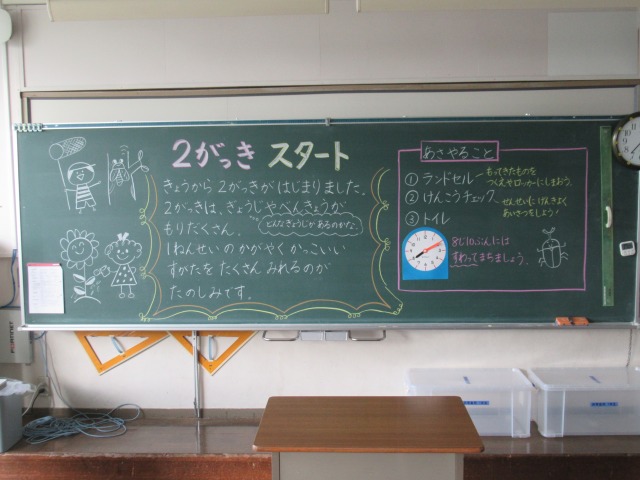 2がっき スタート
きょうから 2がっきが はじまりました。
2がっきは、ぎょうじやべんきょうが
もりだくさん。
どんなぎょうじが あるのかな。
1ねんせい の かがやく かっこいい
すがたを たくさん みれるのが
たのしみです。
あさやること
① ランドセル
もってきたものを
つくえやロッカーにしまおう。
② けんこうチェック
せんせいに げんきよく
あいさつをしよう!
③ トイレ
8じ10ぷんには
すわってまちましょう。